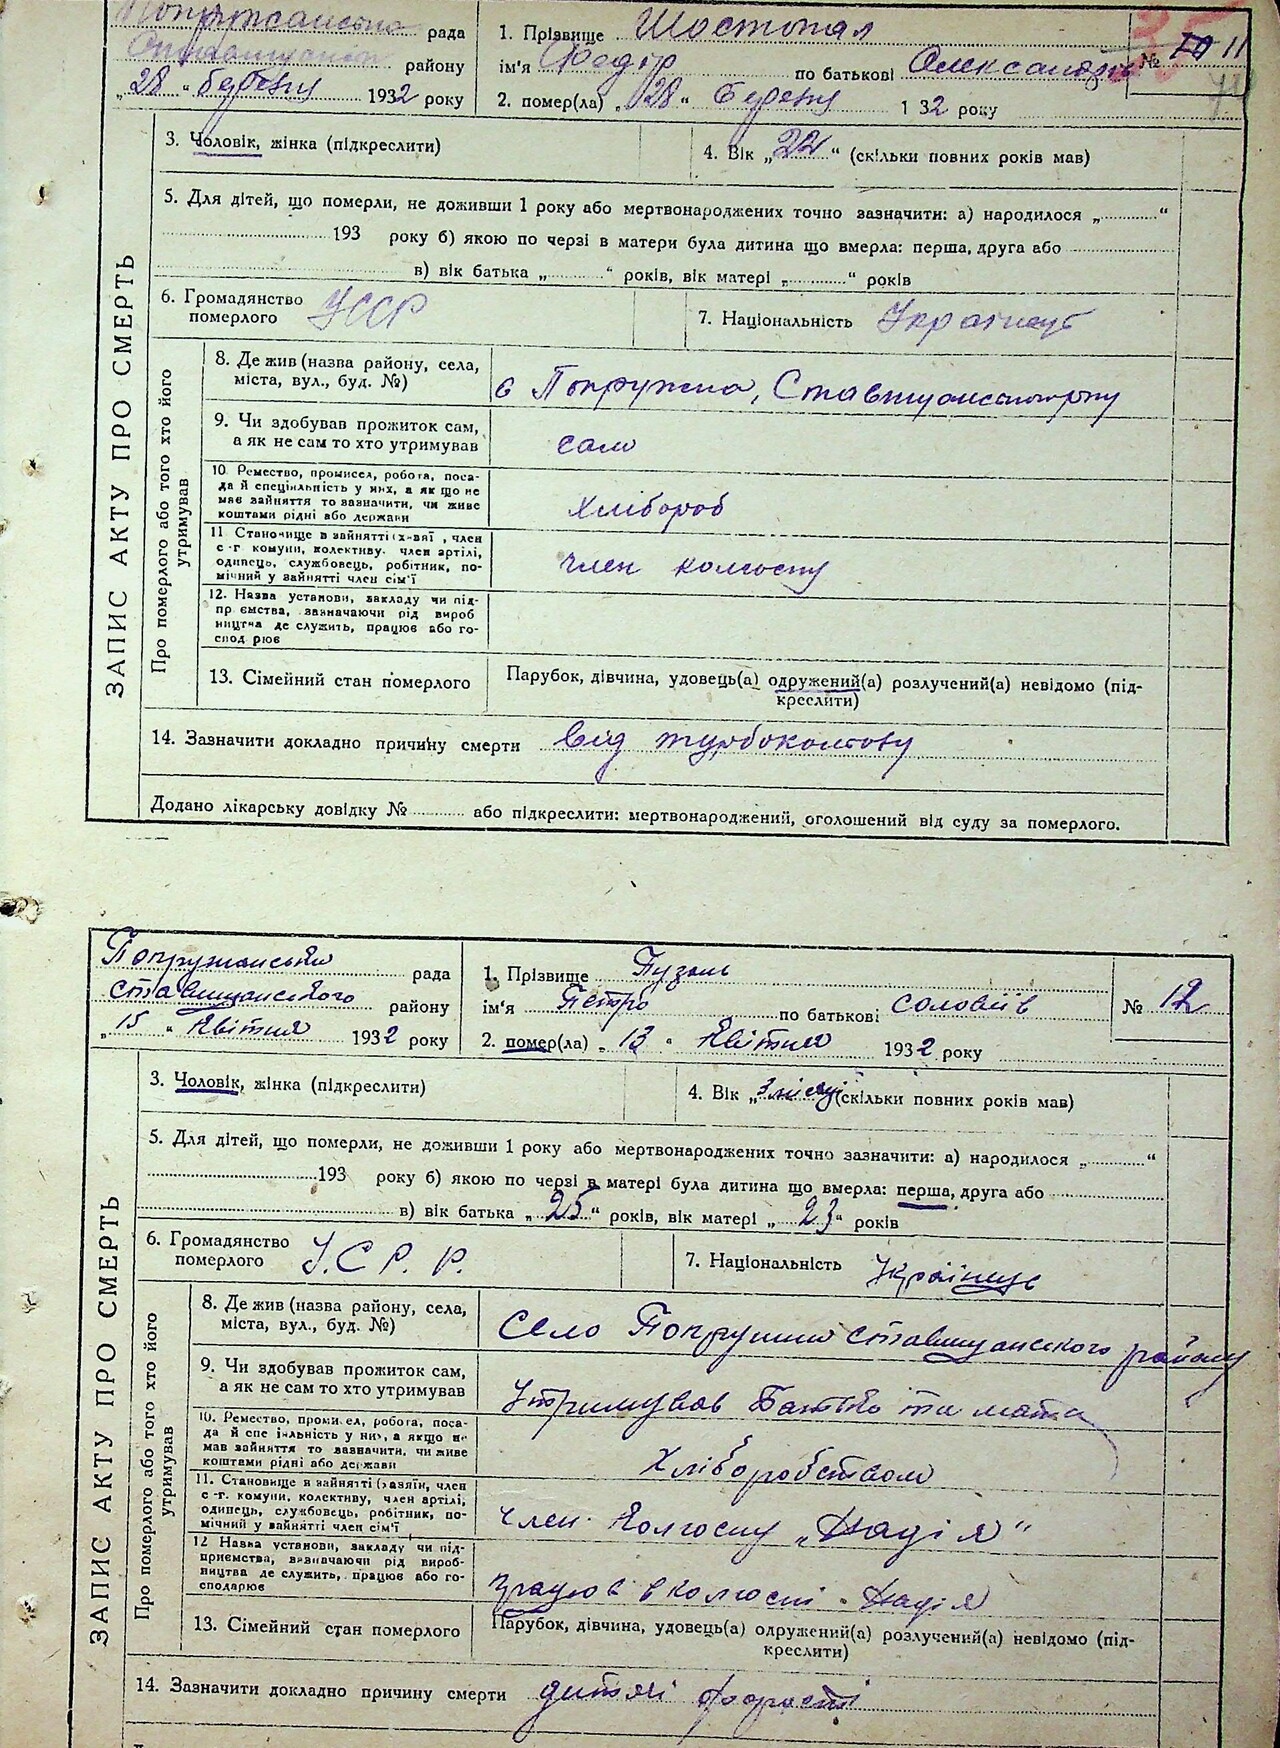 рада
району
„28“ березня 1932 року
1. Прізвище Шостопал
ім'я Федір по батькові Олександрів
2. помер(ла) „28“ березня 1 32 року
№ 11
3. Чоловік, жінка (підкреслити)
4. Вік „22“ (скільки повних років мав)
5. Для дітей, що померли, не доживши 1 року або мертвонароджених точно зазначити: а) народилося „ “
193 року б) якою по черзі в матери була дитина що вмерла: перша, друга або
в) вік батька „ “ років, вік матері „ “ років
6. Громадянство
померлого УССР
7. Національність Українець
ЗАПИС АКТУ ПРО СМЕРТЬ
Про померлого або того хто його
утримував
8. Де жив (назва району, села,
міста, вул., буд. №)
с Попружна,
9. Чи здобував прожиток сам,
а як не сам то хто утримував
сам
10. Ремество, промисел, робота, поса-
да й спеціяльність у них, а як що не
має зайняття то зазначити, чи живе
коштами рідні або держави
Хлібороб
11 Становище в зайнятті (х-ваї , член
с-г комуни, колективу, член артілі,
одинець, службовець, робітник, по-
мічний у зайнятті член сім'ї
член колгоспу
12. Назва установи, закладу чи під-
пр ємства, зазначаючи рід вироб
ництва де служить, працює або го-
спод рює
13. Сімейний стан померлого
Парубок, дівчина, удовець(а) одружений(а) розлучений(а) невідомо (під-
креслити)
14. Зазначити докладно причину смерти від
Додано лікарську довідку № або підкреслити: мертвонароджений, оголошений від суду за померлого.
Попружанська рада
Ставищанського району
„15“ Квітня 1932 року
1. Прізвище Пузань
ім'я Петро по батькові Соловіїв
2. помер(ла) „13“ Квітня 1932 року
№ 12
3. Чоловік, жінка (підкреслити)
4. Вік „3 місяці (скільки повних років мав)
5. Для дітей, що померли, не доживши 1 року або мертвонароджених точно зазначити: а) народилося „ “
193 року б) якою по черзі в матері була дитина що вмерла: перша, друга або
в) вік батька „25“ років, вік матері „23“ років
6. Громадянство
померлого У.С.Р.Р.
7. Національність Українец
ЗАПИС АКТУ ПРО СМЕРТЬ
Про померлого або того хто його
утримував
8. Де жив (назва району, села,
міста, вул., буд. №)
Село Попружна Ставищанського району
9. Чи здобував прожиток сам,
а як не сам то хто утримував
Утримував Батько та мати
10. Ремество, проми ел, робота, поса-
да й спе іяльність у них, а якщо не
мав зайняття то зазначити, чи живе
коштами рідні або держави
Хліборобством
11. Становище в зайнятті (хазяїн, член
с-г. комуни, колективу, член артілі,
одинець, службовець, робітник, по-
мічний у зайнятті член сім'ї
член Колгоспу „Надія“
12 Назва установи, закладу чи під-
приємства, визначаючи рід вироб-
ництва де служить, працює або го-
сподарює
працює в колгоспі Надія
13. Сімейний стан померлого
Парубок, дівчина, удовець(а) одружений(а) розлучений(а) невідомо (під-
креслити)
14. Зазначити докладно причину смерти дитячі